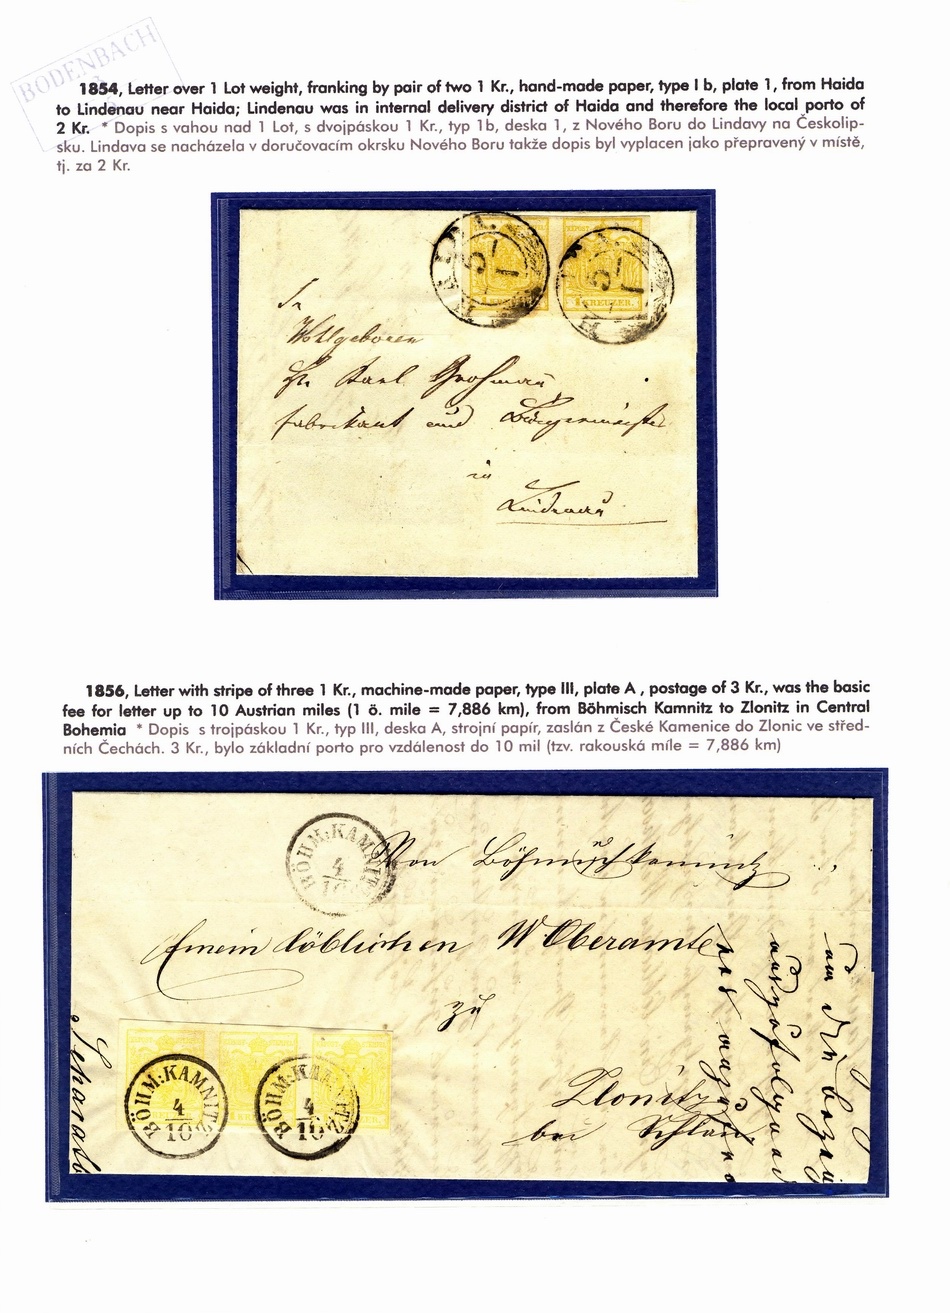 BODENBACH
1854, Letter over 1 Lot weight, franking by pair of two 1 Kr., hand-made paper, type I b, plate 1, from Haida
to Lindenau near Haida; Lindenau was in internal delivery district of Haida and therefore the local porto of
2 Kr. * Dopis s vahou nad 1 Lot, s dvojpáskou 1 Kr., typ 1b, deska 1, z Nového Boru do Lindavy na Českolip-
sku. Lindava se nacházela v doručovacím okrsku Nového Boru takže dopis byl vyplacen jako přepravený v místě,
tj. za 2 Kr.
KREUZER.
Wohlgeboren
Hr. Karl Großmann
Fabrikant und Bürgermeister
in
Lindenau
1856, Letter with stripe of three 1 Kr., machine-made paper, type III, plate A , postage of 3 Kr., was the basic
fee for letter up to 10 Austrian miles (1 ö. mile = 7,886 km), from Böhmisch Kamnitz to Zlonitz in Central
Bohemia * Dopis s trojpáskou 1 Kr., typ III, deska A, strojní papír, zaslán z České Kamenice do Zlonic ve střed-
ních Čechách. 3 Kr., bylo základní porto pro vzdálenost do 10 mil (tzv. rakouská míle = 7,886 km)
BÖHM:KAMNITZ
4
10
Von Böhmischkamnitz
Einem löblichen Oberamte
zu
Zlonitz
bei Schlan
BÖHM:KAMNITZ
4
10
BÖHM:KAMNITZ
4
10